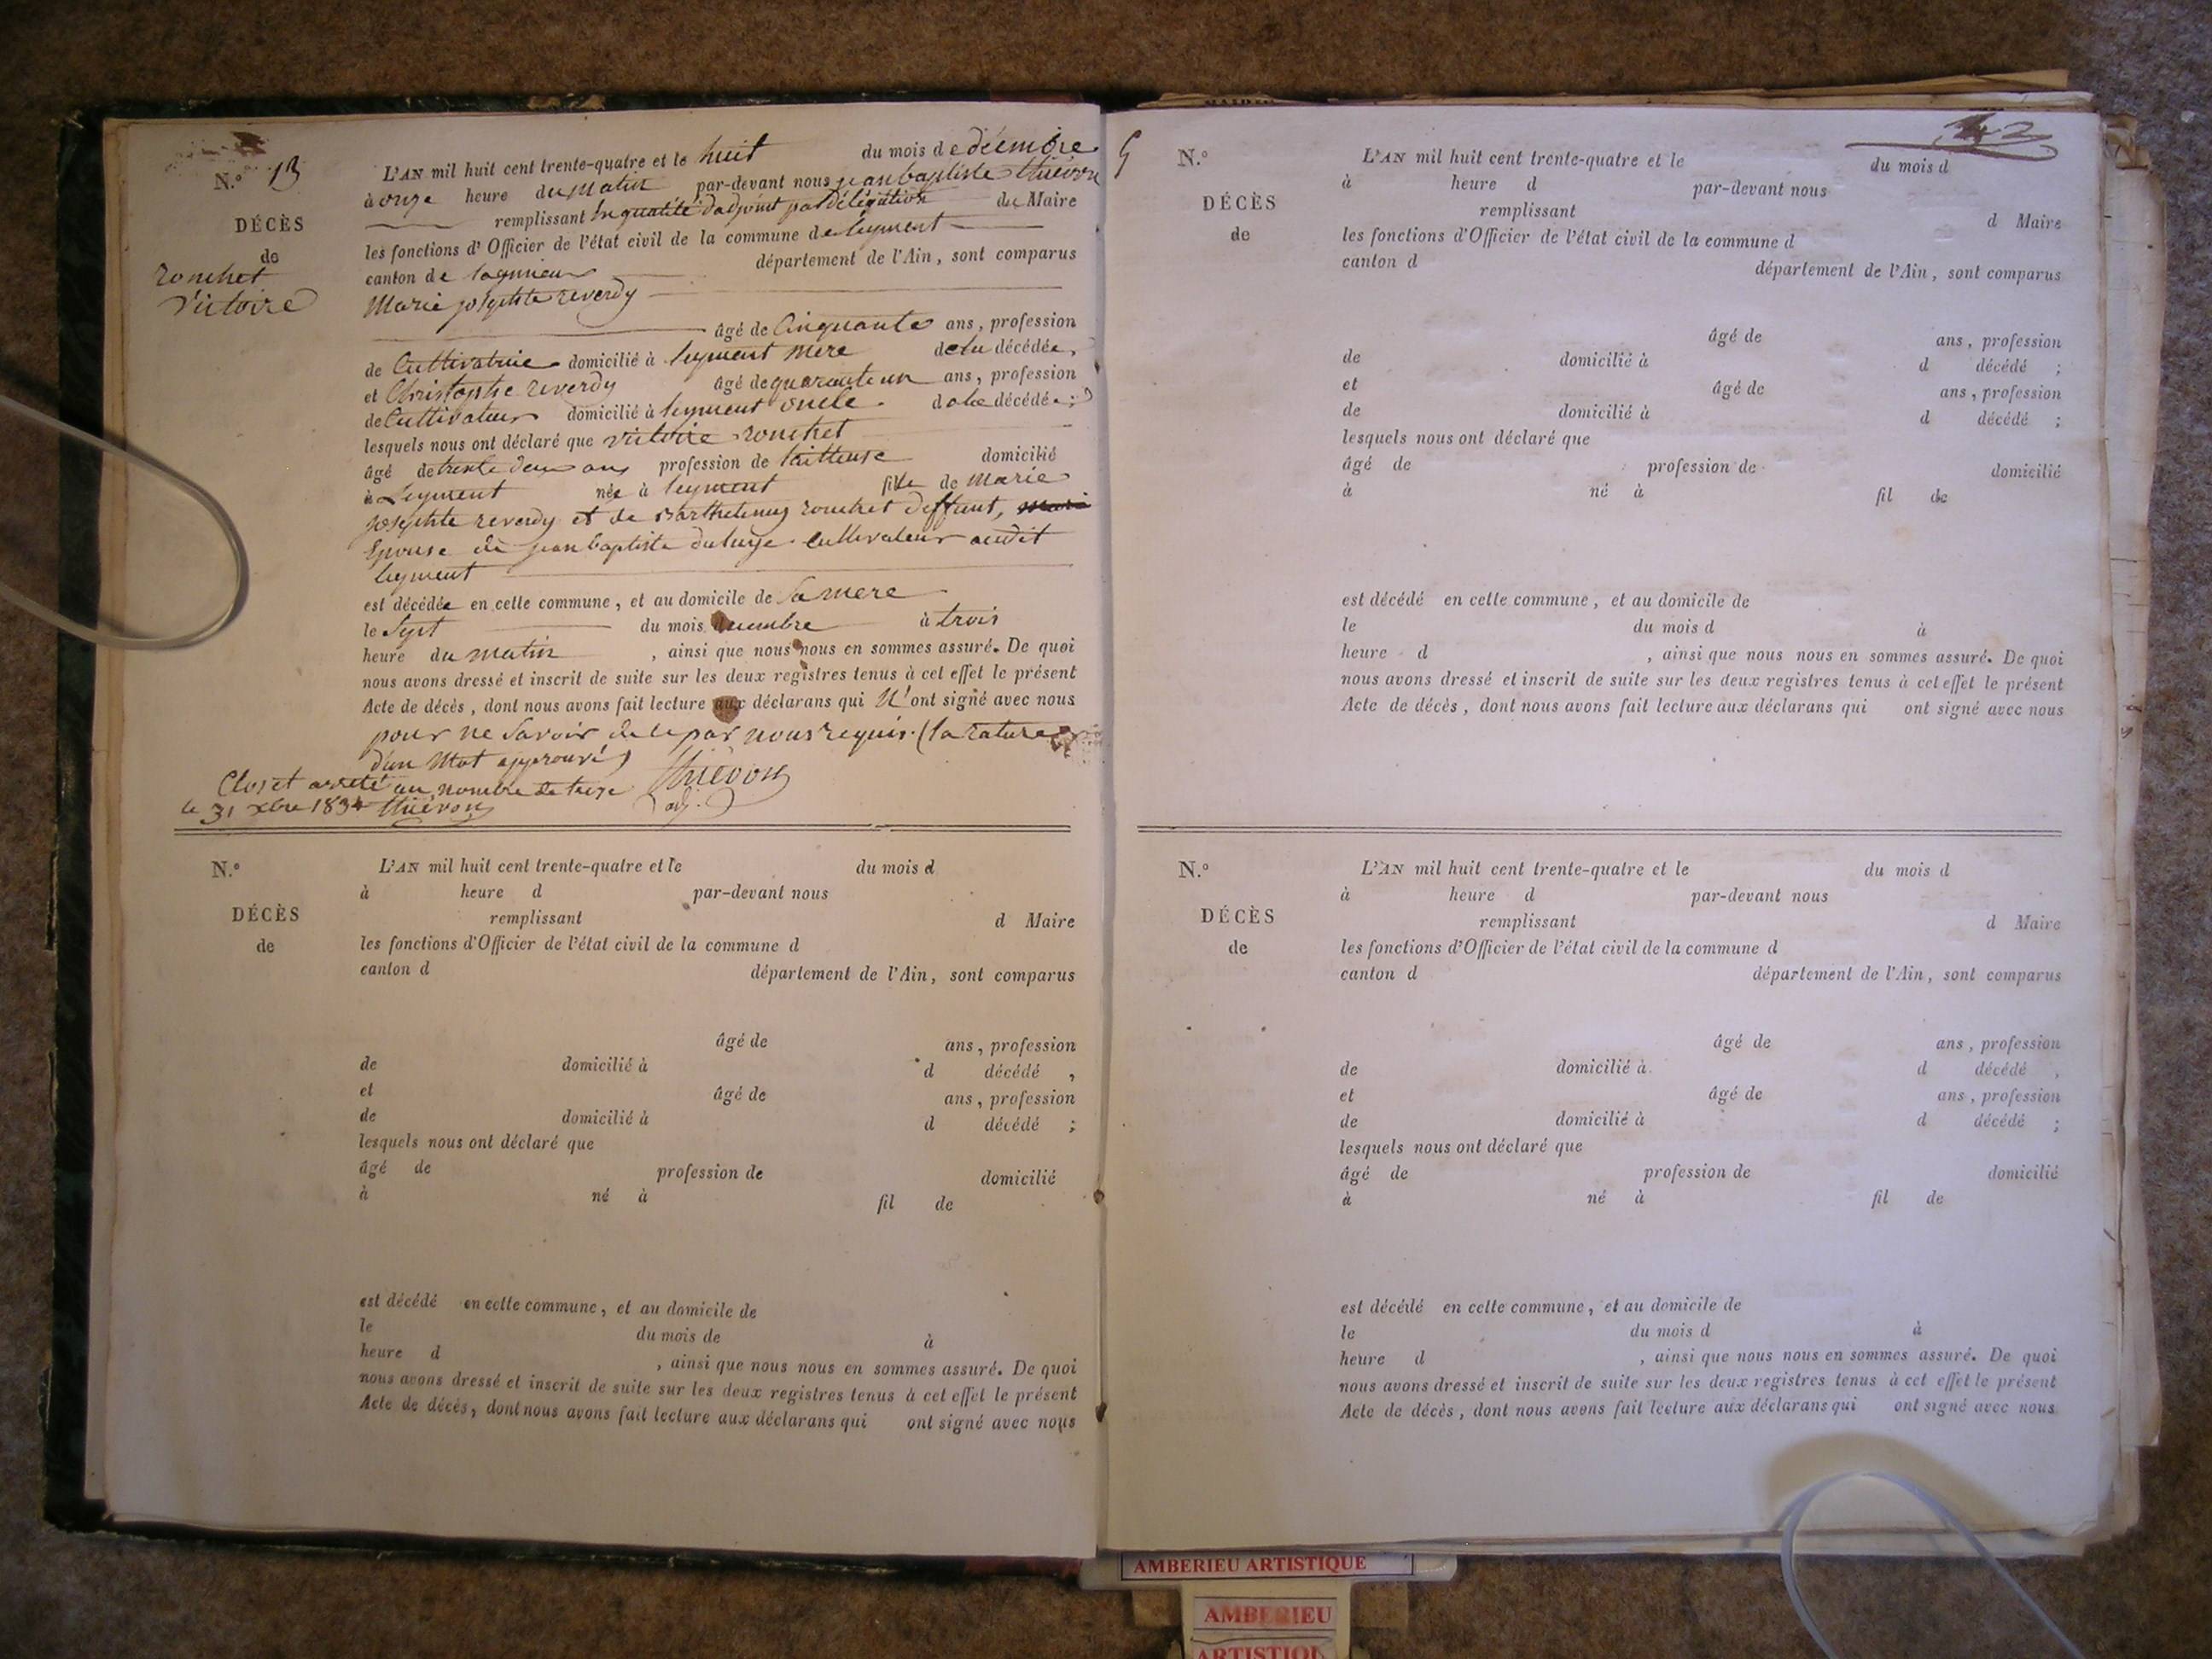 N.° 13
DÉCÈS
de
ronchet
Victoire
L'AN mil huit cent trente-quatre et le huit du mois de décembre
à onze heure du matin par-devant nous jean baptiste thiévon
remplissant en qualité d'adjoint par délégation du Maire
les fonctions d'Officier de l'état civil de la commune de leyment
canton de lagnieu département de l'Ain, sont comparus
Marie josephte reverdy
âgé de Cinquante ans, profession
de Cultivatrice domicilié à leyment mere de la décédée,
et Christophe reverdy âgé de quarante un ans, profession
de Cultivateur domicilié à leyment oncle de la décédée;
lesquels nous ont déclaré que victoire ronchet
âgé de trente deux ans profession de domicilié
à Leyment née à leyment fille de marie
josephte reverdy et de Barthelemy ronchet deffunt,
Epouse de jean baptiste cultivateur audit
leyment
est décédée en cette commune, et au domicile de Sa mere
le Sept du mois décembre à trois
heure du matin , ainsi que nous nous en sommes assuré. De quoi
nous avons dressé et inscrit de suite sur les deux registres tenus à cet effet le présent
Acte de décès, dont nous avons fait lecture aux déclarans qui N'ont signé avec nous
pour ne Savoir de ce par nous requis. (la rature
d'un Mot approuvé) thiévon
Clos et arreté au nombre de treize adj.
le 31 xbre 1834 thiévon
N.°
DÉCÈS
de
L'AN mil huit cent trente-quatre et le du mois d
à heure d par-devant nous
remplissant d Maire
les fonctions d'Officier de l'état civil de la commune d
canton d département de l'Ain, sont comparus
âgé de ans, profession
de domicilié à d décédé ,
et âgé de ans, profession
de domicilié à d décédé ;
lesquels nous ont déclaré que
âgé de profession de domicilié
à né à fil de
est décédé en cette commune, et au domicile de
le du mois de à
heure d , ainsi que nous nous en sommes assuré. De quoi
nous avons dressé et inscrit de suite sur les deux registres tenus à cet effet le présent
Acte de décès, dont nous avons fait lecture aux déclarans qui ont signé avec nous
42
N.°
DÉCÈS
de
L'AN mil huit cent trente-quatre et le du mois d
à heure d par-devant nous
remplissant d Maire
les fonctions d'Officier de l'état civil de la commune d
canton d département de l'Ain, sont comparus
âgé de ans, profession
de domicilié à d décédé ;
et âgé de ans, profession
de domicilié à d décédé ;
lesquels nous ont déclaré que
âgé de profession de domicilié
à né à fil de
est décédé en cette commune, et au domicile de
le du mois d à
heure d , ainsi que nous nous en sommes assuré. De quoi
nous avons dressé et inscrit de suite sur les deux registres tenus à cet effet le présent
Acte de décès, dont nous avons fait lecture aux déclarans qui ont signé avec nous
N.°
DÉCÈS
de
L'AN mil huit cent trente-quatre et le du mois d
à heure d par-devant nous
remplissant d Maire
les fonctions d'Officier de l'état civil de la commune d
canton d département de l'Ain, sont comparus
âgé de ans, profession
de domicilié à d décédé ,
et âgé de ans, profession
de domicilié à d décédé ;
lesquels nous ont déclaré que
âgé de profession de domicilié
à né à fil de
est décédé en cette commune, et au domicile de
le du mois d à
heure d , ainsi que nous nous en sommes assuré. De quoi
nous avons dressé et inscrit de suite sur les deux registres tenus à cet effet le présent
Acte de décès, dont nous avons fait lecture aux déclarans qui ont signé avec nous
AMBERIEU ARTISTIQUE
AMBERIEU
ARTISTIQU